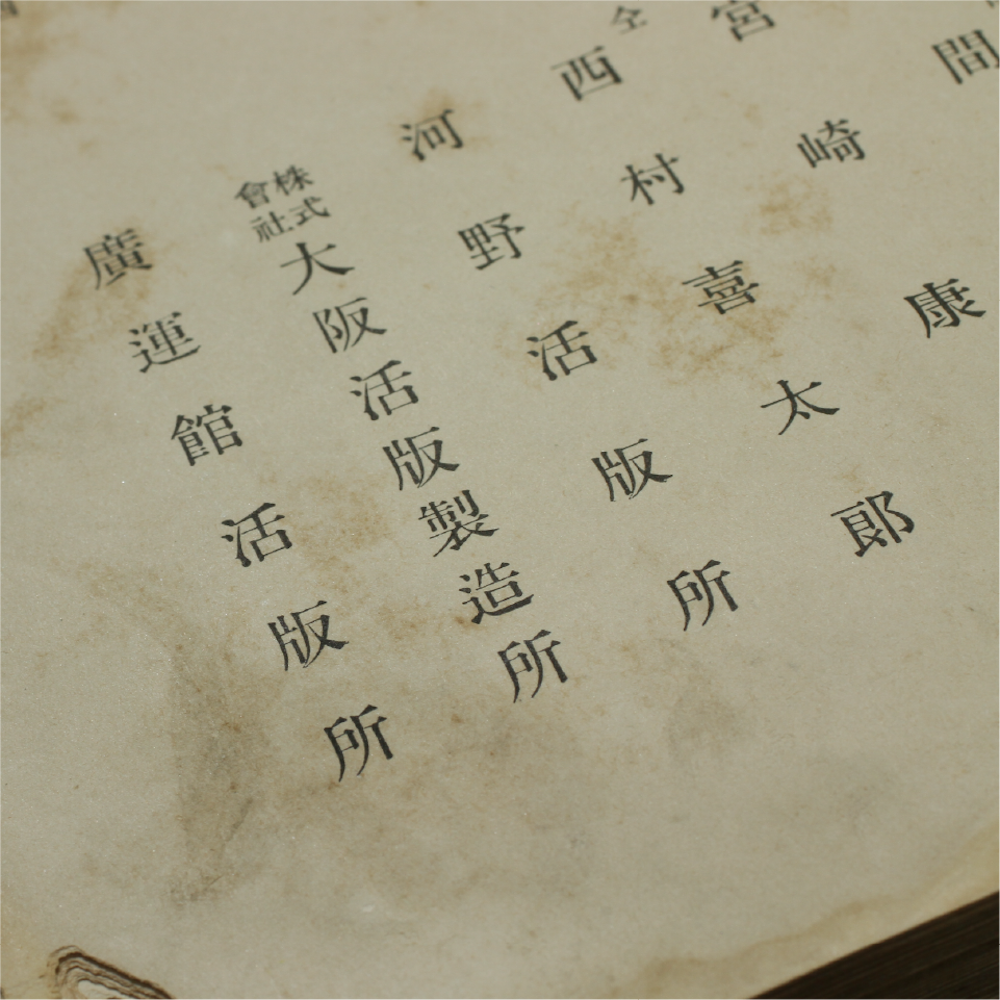 間
宮崎康
仝
西村喜太郞
河野活版所
株式會社大阪活版製造所
廣運館活版所